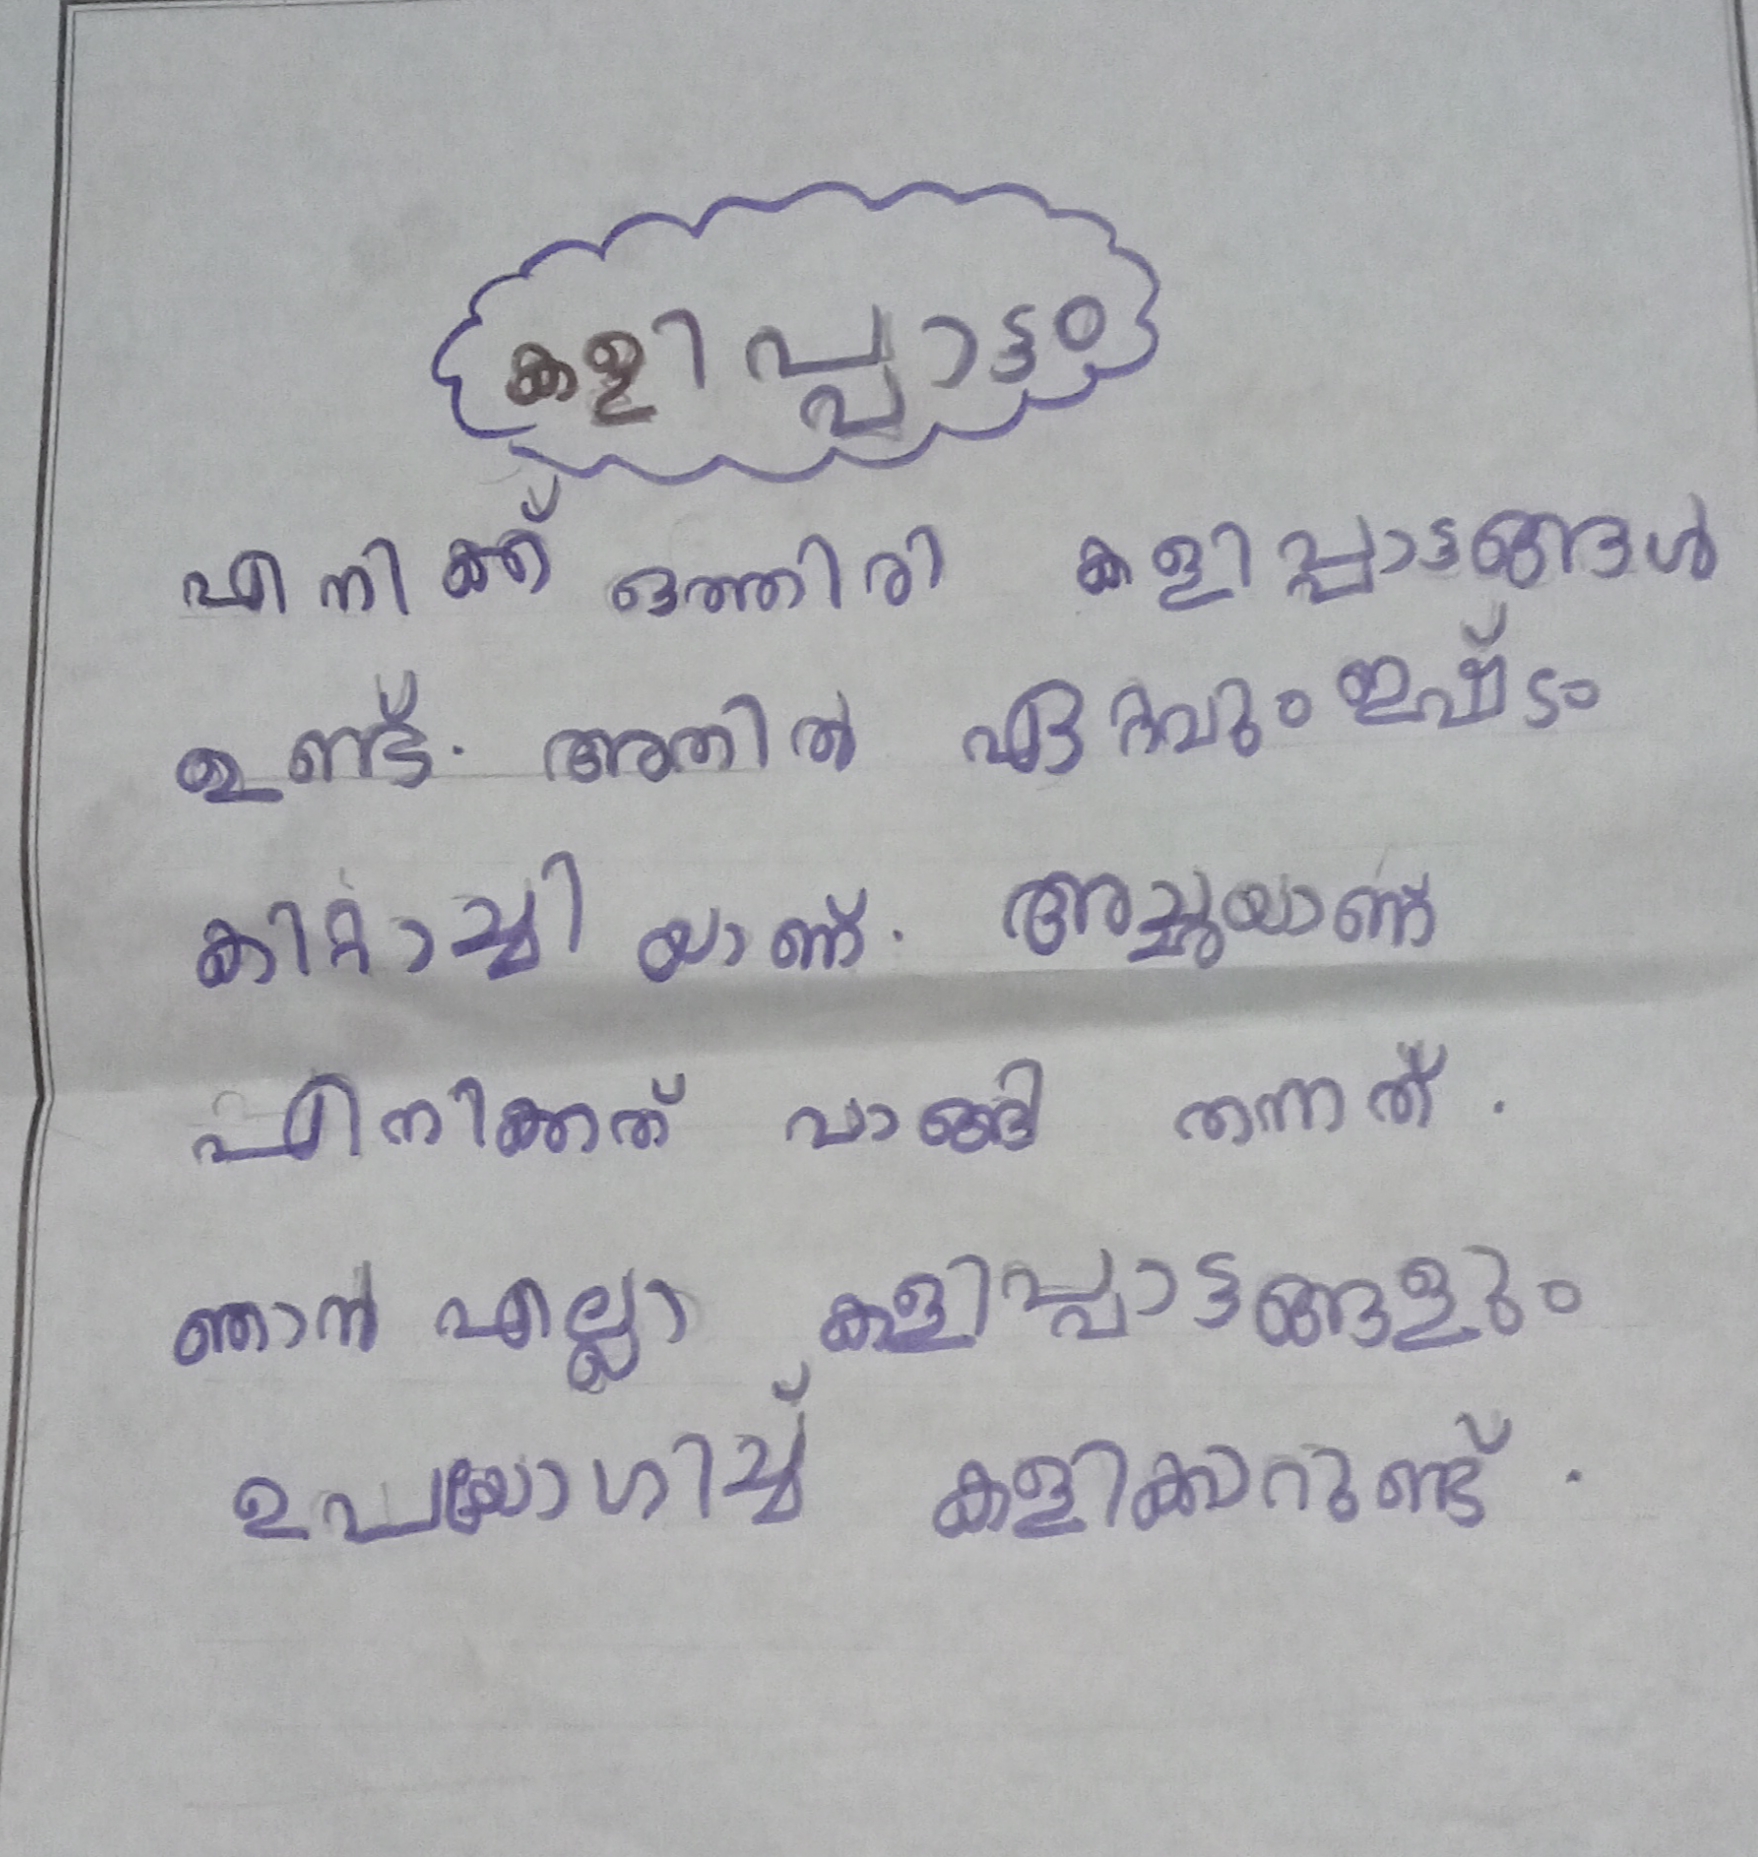 കളിപ്പാട്ടം
എനിക്ക് ഒത്തിരി കളിപ്പാട്ടങ്ങൾ
ഉണ്ട്. അതിൽ ഏറ്റവും ഇഷ്ടം
കിറ്റാച്ചി യാണ്. അച്ചുയാണ്
എനിക്കത് വാങ്ങി തന്നത്.
ഞാൻ എല്ലാ കളിപ്പാട്ടങ്ങളും
ഉപയോഗിച്ച് കളിക്കാറുണ്ട്.